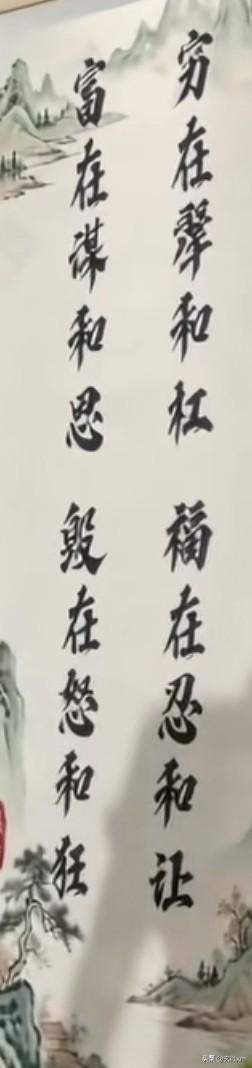 穷在犟和杠 福在忍和让
富在谋和思 毁在怒和狂
头条